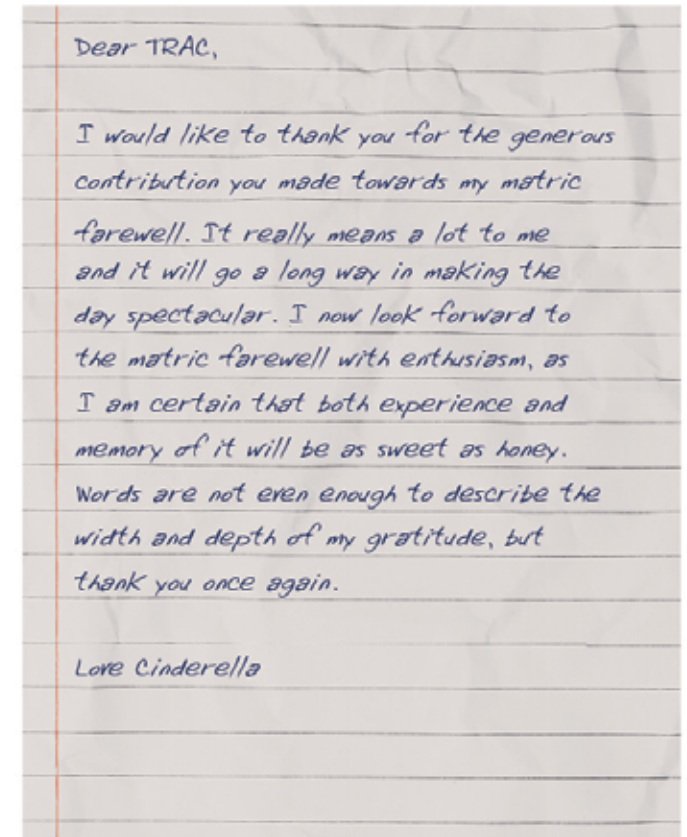 Dear TRAC,
I would like to thank you for the generous
contribution you made towards my matric
farewell. It really means a lot to me
and it will go a long way in making the
day spectacular. I now look forward to
the matric farewell with enthusiasm, as
I am certain that both experience and
memory of it will be as sweet as honey.
Words are not even enough to describe the
width and depth of my gratitude, but
thank you once again.
Love Cinderella